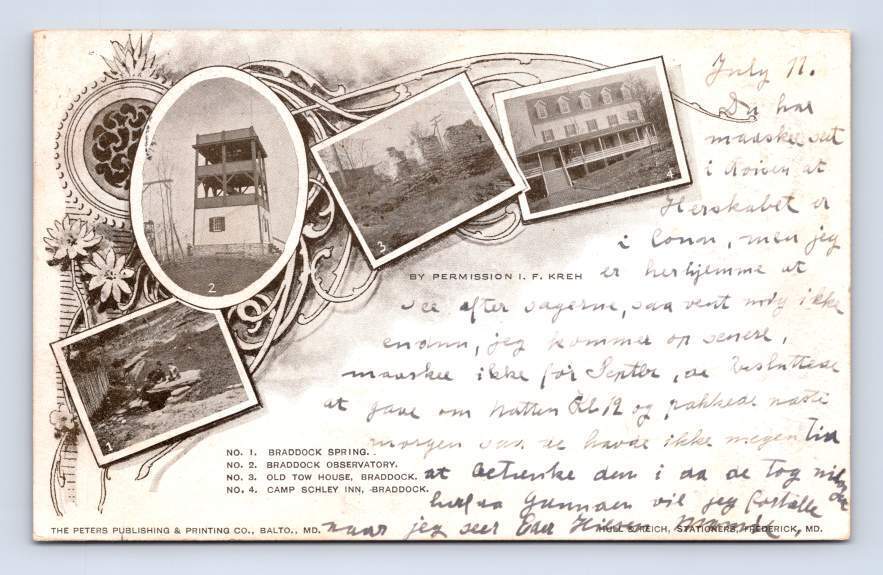 July 11.
Du har
maaskee seet
i Avisen at
Herskabet er
i Conn, men jeg
er herhjemme at
see efter sagerne, saa vent mig ikke
endnu, jeg kommer op senere,
maaskee ikke før Septbr, de besluttede
at gaae om Natten Kl 12 og pakkede næste
morgen saa de havde ikke megen tid
at betænke den i da de tog
vil jeg fortælle
naar jeg seer Eder Hilsen
2
3
4
1
BY PERMISSION I. F. KREH
NO. 1. BRADDOCK SPRING.
NO. 2. BRADDOCK OBSERVATORY.
NO. 3. OLD TOW HOUSE, BRADDOCK.
NO. 4. CAMP SCHLEY INN, BRADDOCK.
THE PETERS PUBLISHING & PRINTING CO., BALTO., MD.
HULL & REICH, STATIONERS, FREDERICK, MD.